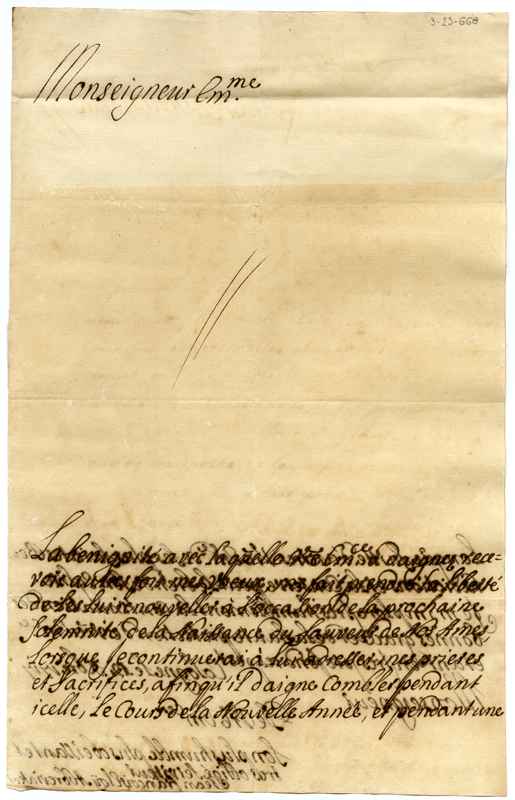 3-23-668
Monseigneur Em.me
La benignité avec laquelle Vre Em.ce a daignez rece-
voir autres fois mes Vœux, me fait prendre la liberté
de Les lui renouveller à l'occasion de la prochaine
Solemnité de la Naissance du Sauveur de Nos Ames
Lorsque je continuerai à lui adresser mes prieres
et Sacrifices, afinqu'il daigne Combler pendant
icelle, Le Cours de la Nouvelle Année, et pendant une